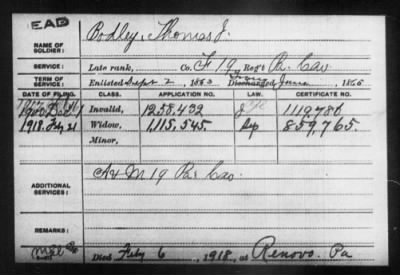 EAD
NAME OF SOLDIER: Bodley, Thomas J.
SERVICE: Late rank, Co. F 19 Reg't Pa. Cav
TERM OF SERVICE: Enlisted Sept 2, 1863 Discharged June, 1865
DATE OF FILING. CLASS. APPLICATION NO. LAW. CERTIFICATE NO.
Invalid, 1258,432
1918. Feby 21 Widow, 1,115,545. Sep 859,765.
Minor,
ADDITIONAL SERVICES: A & M 19 Pa. Cav.
REMARKS:
Died Feby 6, 1918, at Renovo. Pa